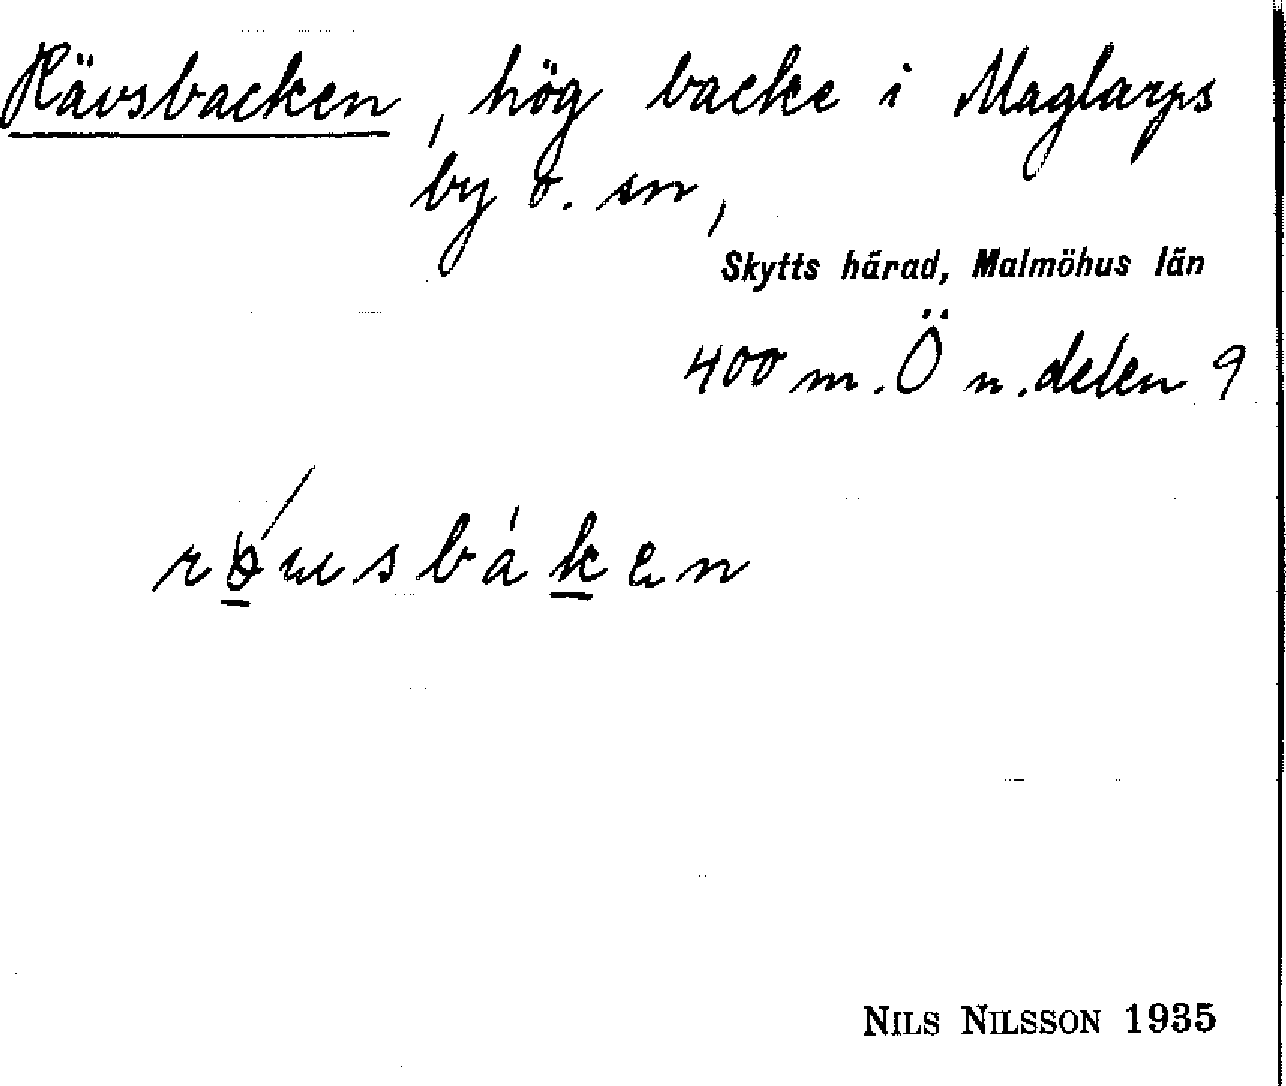 Rävsbacken, hög backe i Maglarps
by o. sn,
Skytts härad, Malmöhus län
400 m. Ö n. delen 9
Nils Nilsson 1935